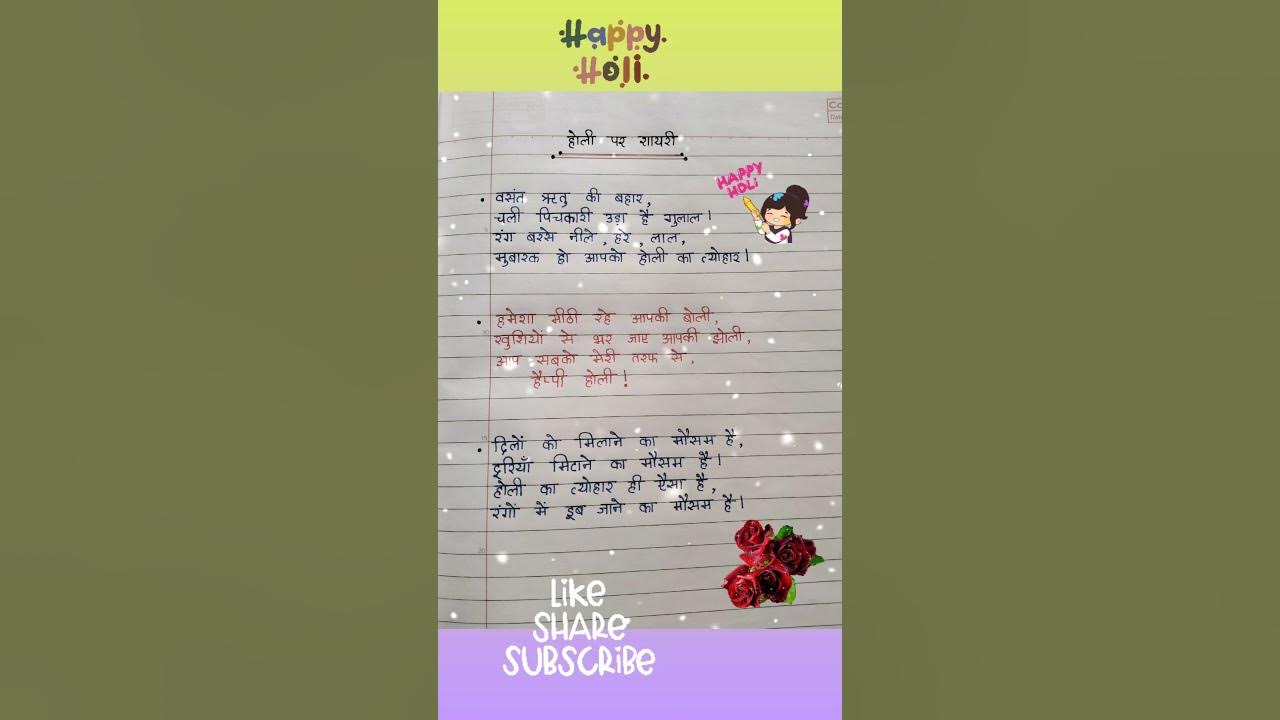 Happy
Holi
होली पर शायरी
HAPPY
HOLi
• वसंत ऋतु की बहार,
चली पिचकारी उड़ा है गुलाल।
रंग बरसे नीले, हरे, लाल,
मुबारक हो आपको होली का त्योहार।
• हमेशा मीठी रहे आपकी बोली,
खुशियों से भर जाए आपकी झोली,
आप सबको मेरी तरफ से,
हैप्पी होली!
• दिलों को मिलाने का मौसम है,
दूरियाँ मिटाने का मौसम है।
होली का त्योहार ही ऐसा है,
रंगों में डूब जाने का मौसम है।
LIKE
SHARE
SUBSCRIBE